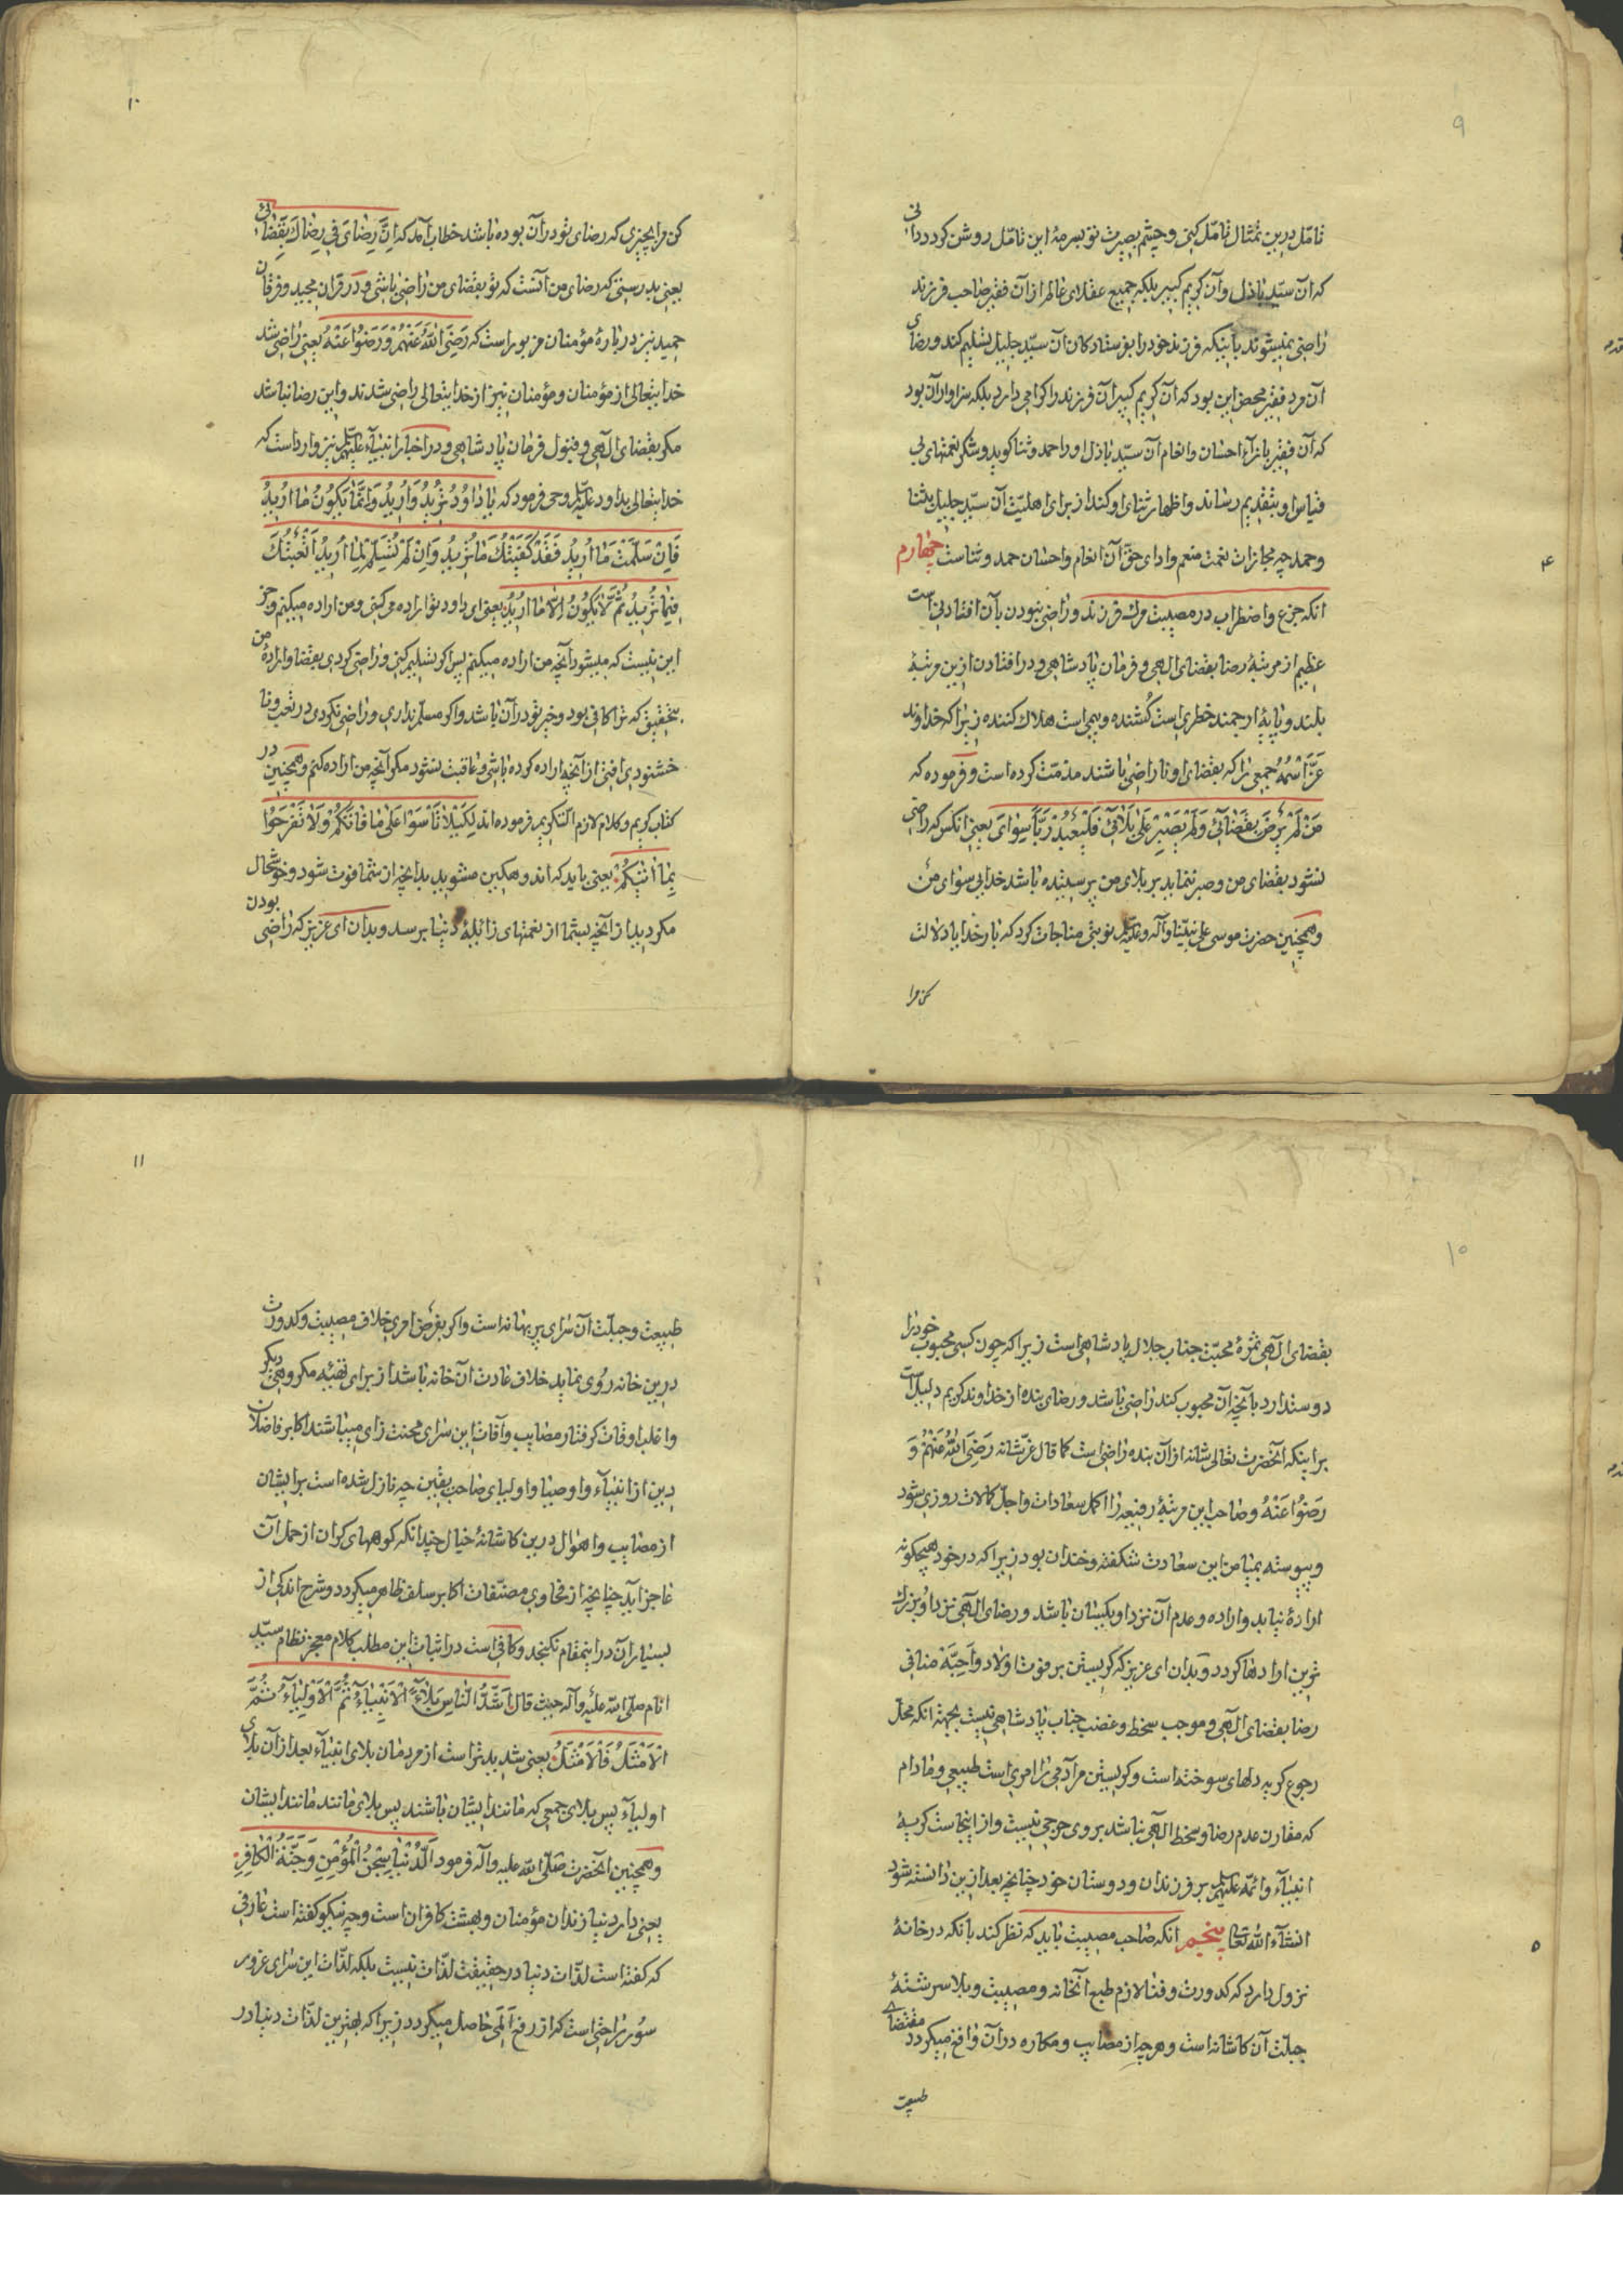 ۹
تامّل درین تمثال تامّل کنی و چشم بصیرت تو بسرمهٔ این تامّل روشن کردد دانی
که آن سیّد باذل و آن کریم کبیر بلکه جمیع عقلای عالم از آن فقیر صاحب فرزند
راضی نمیشوند باینکه فرزند خود را بفرستادکان آن سیّد جلیل تسلیم کند و رضای
آن مرد فقیر محض این بود که آن کریم کبیر آن فرزند را کرامی دارد بلکه سزاوار آن بود
که آن فقیر بازآء احسان و انعام آن سیّد باذل او را حمد و ثنا کوید و شکر نعمتهای بی
قیاس او بتقدیم رساند و اظهار ثنای او کند از برای اهلیّت آن سیّد جلیل بثنا
و حمد چه مجازات نعمت منعم و ادای حقّ آن انعام و احسان حمد و ثناست چهارم
۴
انکه جزع و اضطراب در مصیبت مرك فرزند و راضی نبودن بآن افتادنی است
عظیم از مرتبهٔ رضا بقضای الهی و فرمان پادشاهی و در افتادن ازین مرتبهٔ
بلند و پایهٔ ارجمند خطری است کُشنده و بیمی است هلاك کننده زیرا که خداوند
عزّ اسمهُ جمعی را که بقضای او ناراضی باشند مذمّت کرده است و فرموده که
مَنْ لَمْ یَرْضَ بِقَضَائی وَلَمْ یَصْبِرْ عَلی بَلائی فَلْیَعْبُدْ رَبّاً سِوَایَ یعنی انکس که راضی
نشود بقضای من و صبر ننماید بر بلای من پرستنده باشد خدایی سوای من
و همچنین حضرت موسی علی نبیّنا و آله و علیه السّلم نوبتی مناجات کرد که بار خدایا دلالت
کن مرا
۱۰
کن مرا بچیزی که رضای تو در آن بوده باشد خطاب آمد که اِنَّ رِضَایَ فی رِضَاكَ بِقَضَائی
یعنی بدرستی که رضای من آنست که تو بقضای من راضی باشی و در قران مجید و فرقان
حمید نیز در بارهٔ مؤمنان مزبور است که رَضِیَ اللهُ عَنْهُمْ وَ رَضُوا عَنْهُ یعنی راضی شد
خدایتعالی از مؤمنان و مؤمنان نیز از خدایتعالی راضی شدند و این رضا نباشد
مکر بقضای الهی و قبول فرمان پادشاهی و در اخبار انبیآء علیهم السّلم نیز وارد است که
خدایتعالی بداود علیه السّلم وحی فرمود که یا دَاوُدُ تُرِیدُ وَ اُرِیدُ وَ اِنَّمَا یَکُونُ مَا اُرِیدُ
فَاِنْ سَلَّمْتَ مَا اُرِیدُ فَقَدْ کَفَیْتُكَ مَا تُرِیدُ وَاِنْ لَمْ تُسَلِّمْ لِمَا اُرِیدُ اَتْعَبْتُكَ
فِیمَا تُرِیدُ ثُمَّ لَا یَکُونُ اِلَّا مَا اُرِیدُ یعنی ای داود تو اراده می کنی و من اراده میکنم و جز
این نیست که میشود آنچه من اراده میکنم پس اکر تسلیم کنی و راضی کردی بقضا و ارادهٔ من
بتحقیق که ترا کافی بود و خیر تو در آن باشد و اکر مسلّم نداری و راضی نکردی در تعب و نا
خشنودی افتی از آنچه اراده کرده باشی و عاقبت نشود مکر آنچه من اراده کنم و همچنین در
کتاب کریم و کلام لازم التکریم فرموده اند لِکَیْلَا تَأْسَوْا عَلی مَا فَاتَکُمْ وَلَا تَفْرَحُوا
بِمَا اٰتیٰکُمْ یعنی باید که اندوهکین مشوید بدانچه از شما فوت شود و خوشحال
مکردید از آنچه بشما از نعمتهای زائلهٔ دنیا برسد و بدان ای عزیز که راضی بودن
۱۰
بقضای الهی ثمرهٔ محبّت جناب جلال پادشاهی است زیرا که چون کسی محبوب خود را
دوست دارد بآنچه آن محبوب کند راضی باشد و رضای بنده از خداوند کریم دلیل است
بر اینکه آنحضرت تعالی شانه از آن بنده راضی است کما قال عزّ شانه رَضِیَ اللهُ عَنْهُمْ وَ
رَضُوا عَنْهُ و صاحب این مرتبهٔ رفیعه را اکمل سعادات و اجلّ کمالات روزی شود
و پیوسته بمیامن این سعادت شکفته و خندان بود زیرا که در خود هیچکونه
ارادهٔ نیابد و اراده و عدم آن نزد او یکسان باشد و رضای الهی نزد او بزرك
ترین ارادها کردد و بدان ای عزیز که کریستن بر فوت اولاد و اَحِبَّه منافی
رضا بقضای الهی و موجب سخط و غضب جناب پادشاهی نیست بجهت انکه محلّ
رجوع کریه دلهای سوخته است و کریستن مر آدمی را امری است طبیعی و مادام
که مقارن عدم رضا و سخط الهی نباشد بر وی حرجی نیست و از اینجاست کریهٔ
انبیآء و ائمّه علیهم السّلم بر فرزندان و دوستان خود چنانچه بعد ازین دانسته شود
انشآء الله تعالی پنجم انکه صاحب مصیبت باید که نظر کند بانکه در خانهٔ
۵
نزول دارد که کدورت و فنا لازم طبع آنخانه و مصیبت و بلا سرشتهٔ
جبلّت آن کاشانه است و هر چه از مصایب و مکاره در آن واقع میکردد مقتضای
طبیعت
۱۱
طبیعت و جبلّت آن سرای پر بهانه است و اکر بفرض امری خلاف مصیبت و کدورت
درین خانه رُوی نماید خلاف عادت آن خانه باشد از برای تهیّهٔ مکروهی دیکر
و اغلب اوقات کرفتار مصایب و آفات این سرای محنت زای میباشند اکابر فاضلان
دین از انبیآء و اوصیا و اولیای صاحب یقین چه نازل شده است بر ایشان
از مصایب و اهوال درین کاشانهٔ خیال چندانکه کوههای کران از حمل آن
عاجز آید چنانچه از فحاوی مصنّفات اکابر سلف ظاهر میکردد و شرح اندکی از
بسیار آن در اینمقام نکنجد و کافی است در اثبات این مطلب کلام معجز نظام سیّد
انام صلّی الله علیه و آله حیث قال اَشَدُّ النَّاسِ بَلَاءً الْاَنْبِیَآءُ ثُمَّ الْاَوْلِیَآءُ ثُمَّ
الْاَمْثَلُ فَالْاَمْثَلُ یعنی شدیدتر است از مردمان بلای انبیآء بعد از آن بلای
اولیآء پس بلای جمعی که مانند ایشان باشند پس بلای مانند مانند ایشان
و همچنین آنحضرت صلّی الله علیه و آله فرمود اَلدُّنْیَا سِجْنُ الْمُؤْمِنِ وَجَنَّةُ الْکَافِرِ
یعنی دار دنیا زندان مؤمنان و بهشت کافران است و چه نیکو کفته است عارفی
که کفته است لذّات دنیا در حقیقت لذّات نیست بلکه لذّات این سرای غرور
سُرور راحتی است که از رفع اَلَمی حاصل میکردد زیرا که بهترین لذّات دنیا در